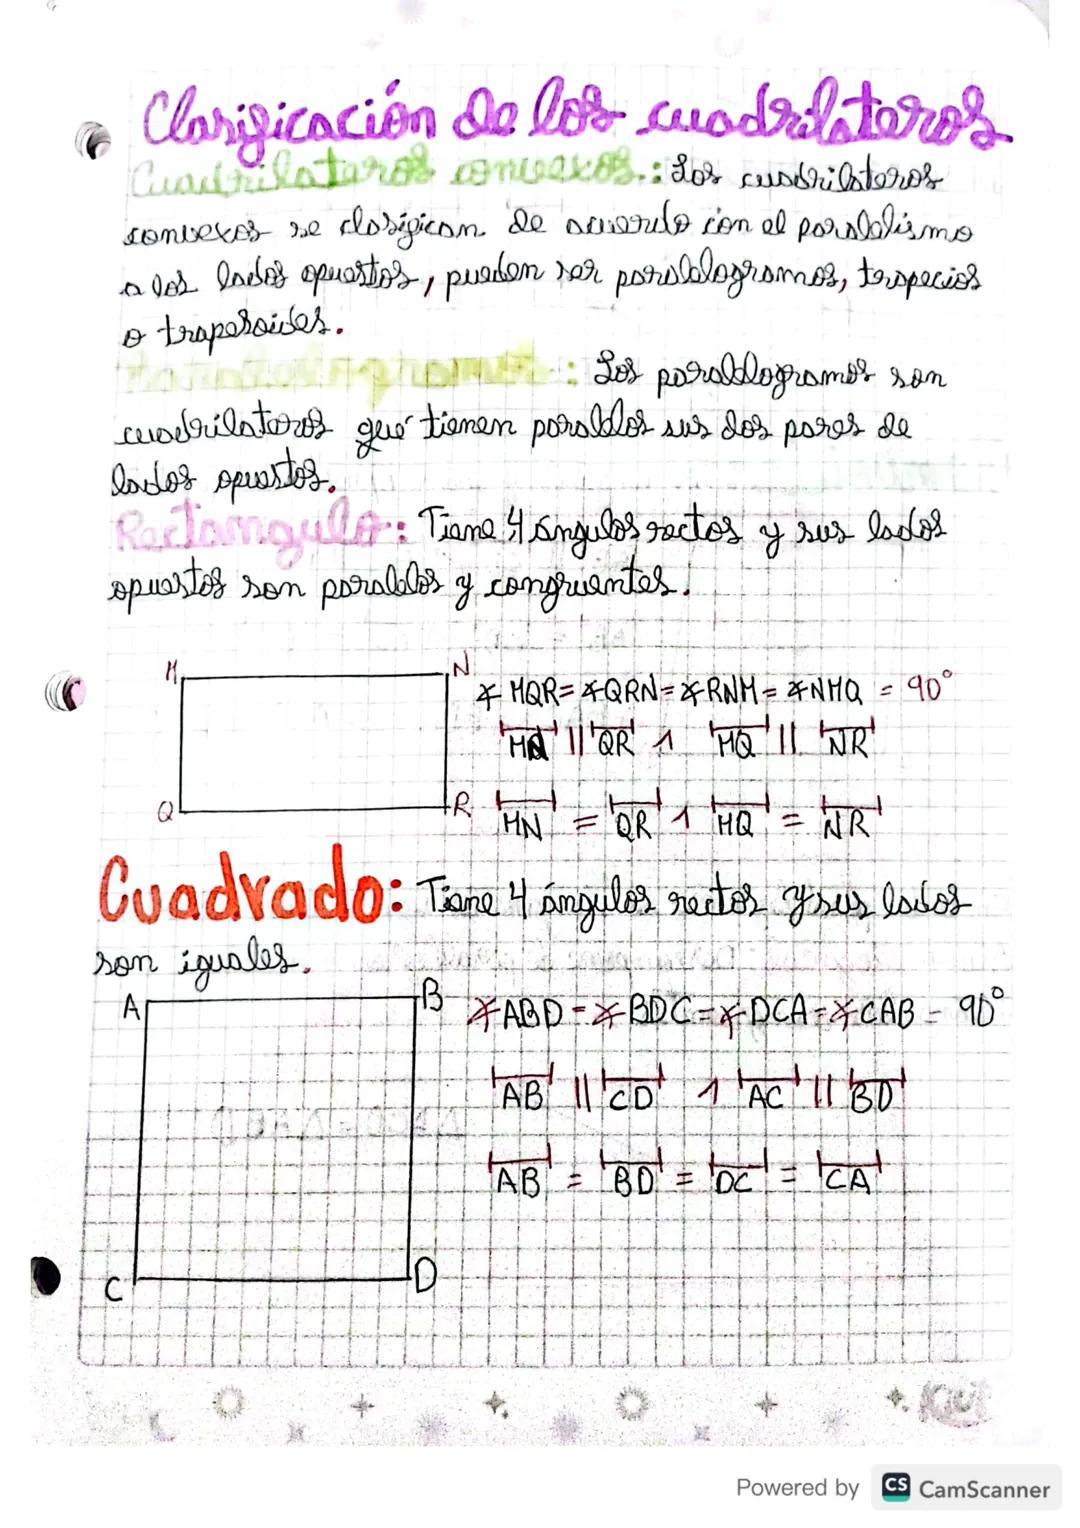 Clasificación de los cuadrilateros
Cuadrilateros convexos.: Los cuadrilateros
convexos se clasifican de acuerdo con el paralelismo
a los lados opuestos, pueden ser paralelogramos, trapecios
o trapesoides.
: Los paralelogramos son
cuadrilateros que tienen paralelos sus dos pares de
lados opuestos.
Rectangulo: Tiene 4 ángulos rectos y sus lados
opuestos son paralelos y congruentes.
M N
∡ MQR = ∡QRN = ∡RNM = ∡NMQ = 90°
MN || QR ∧ MQ || NR
Q R
MN = QR ∧ MQ = NR
Cuadrado: Tiene 4 ángulos rectos y sus lados
son iguales.
A B
∡ABD = ∡BDC = ∡DCA = ∡CAB = 90°
AB || CD ∧ AC || BD
AB = BD = DC = CA
C D
Kiut
Powered by CS CamScanner